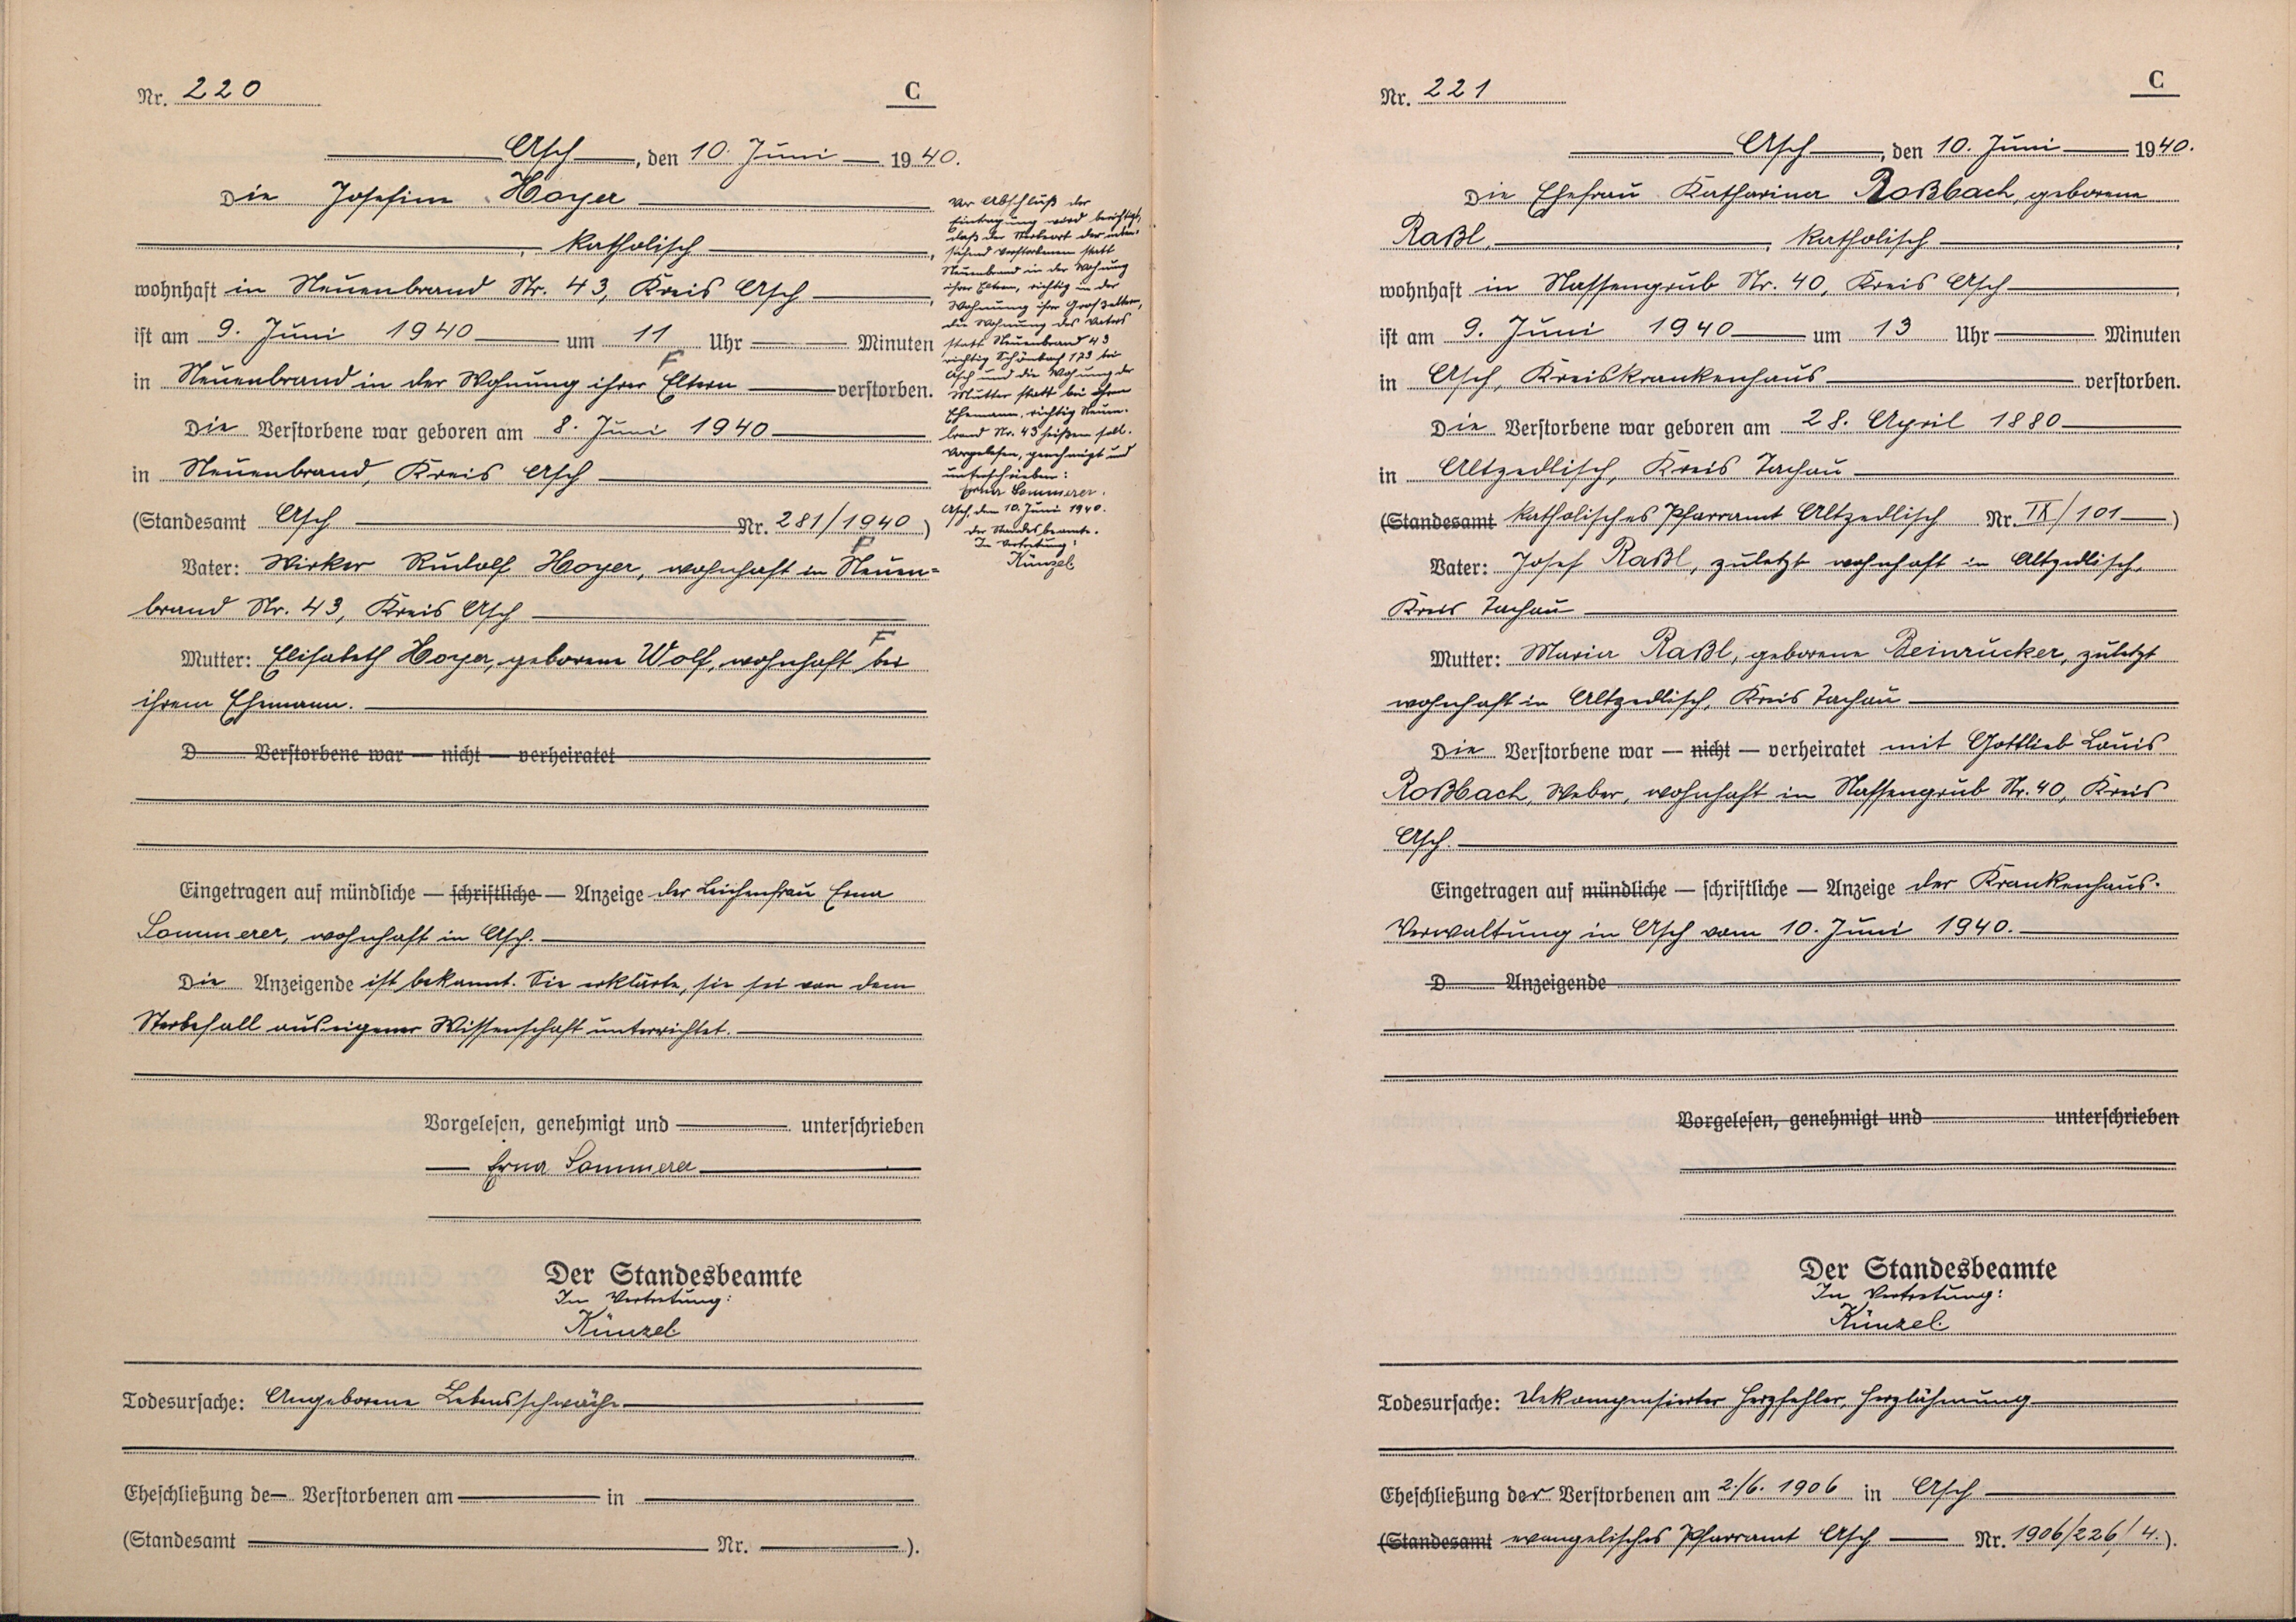 Nr. 220
C
Asch, den 10. Juni 1940.
Die Josefine Hoyer
, katholisch,
wohnhaft in Neuenbrand Nr. 43, Kreis Asch,
ist am 9. Juni 1940 um 11 Uhr Minuten
in Neuenbrand in der Wohnung ihrer F Eltern verstorben.
Die Verstorbene war geboren am 8. Juni 1940
in Neuenbrand, Kreis Asch
(Standesamt Asch Nr. 281/1940)
Vater: Wirker Rudolf Hoyer, wohnhaft in F Neuen=
brand Nr. 43, Kreis Asch
Mutter: Elisabeth Hoyer, geborene Wolf, wohnhaft F bei
ihrem Ehemann.
D Verstorbene war — nicht — verheiratet
Eingetragen auf mündliche — schriftliche — Anzeige der Leichenfrau Erna
Sommerer, wohnhaft in Asch.
Die Anzeigende ist bekannt. Sie erklärte, sie sei von dem
Sterbefall aus eigener Wissenschaft unterrichtet.
Vorgelesen, genehmigt und unterschrieben
Erna Sommerer
Der Standesbeamte
In Vertretung:
Künzel
Todesursache: Angeborene Lebensschwäche
Eheschließung de Verstorbenen am in
(Standesamt Nr. ).
Vor Abschluß der
Eintragung wird berichtigt,
daß der Sterbeort der neben-
stehend verstorbenen statt
Neuenbrand in der Wohnung
ihrer Eltern, richtig in der
Wohnung ihrer Großeltern,
die Wohnung des Vaters
statt Neuenbrand 43
richtig Schönbach 173 bei
Asch und die Wohnung der
Mutter statt bei ihrem
Ehemann, richtig Neuen-
brand Nr. 43 heißen soll.
Vorgelesen, genehmigt und
unterschrieben:
Erna Sommerer.
Asch, den 10. Juni 1940.
Der Standesbeamte.
In Vertretung:
Künzel
Nr. 221
C
Asch, den 10. Juni 1940.
Die Ehefrau Katharina Roßbach, geborene
Raßl, , katholisch,
wohnhaft in Nassengrub Nr. 40, Kreis Asch,
ist am 9. Juni 1940 um 13 Uhr Minuten
in Asch, Kreiskrankenhaus verstorben.
Die Verstorbene war geboren am 28. April 1880
in Altzedlisch, Kreis Tachau
(Standesamt katholisches Pfarramt Altzedlisch Nr. IX/101)
Vater: Josef Raßl, zuletzt wohnhaft in Altzedlisch
Kreis Tachau
Mutter: Maria Raßl, geborene Beinrucker, zuletzt
wohnhaft in Altzedlisch, Kreis Tachau
Die Verstorbene war — nicht — verheiratet mit Gottlieb Louis
Roßbach, Weber, wohnhaft in Nassengrub Nr. 40, Kreis
Asch.
Eingetragen auf mündliche — schriftliche — Anzeige der Krankenhaus-
Verwaltung in Asch vom 10. Juni 1940.
D Anzeigende
Vorgelesen, genehmigt und unterschrieben
Der Standesbeamte
In Vertretung:
Künzel
Todesursache: Dekompensierter Herzfehler, Herzlähmung
Eheschließung der Verstorbenen am 2./6. 1906 in Asch
(Standesamt evangelisches Pfarramt Asch Nr. 1906/226/4.).